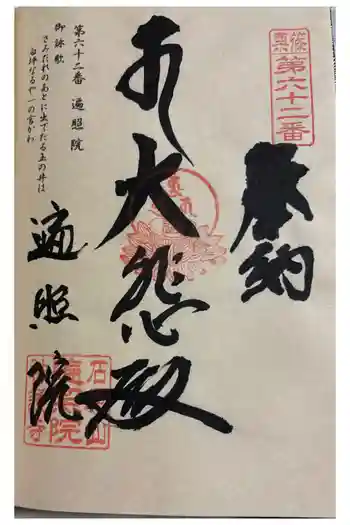 篠栗
第六十二番
奉納
大悲殿
遍照院
第六十二番 遍照院
御詠歌
さみだれのあとに出でたる玉の井は
白坪なるや一の宮かわ